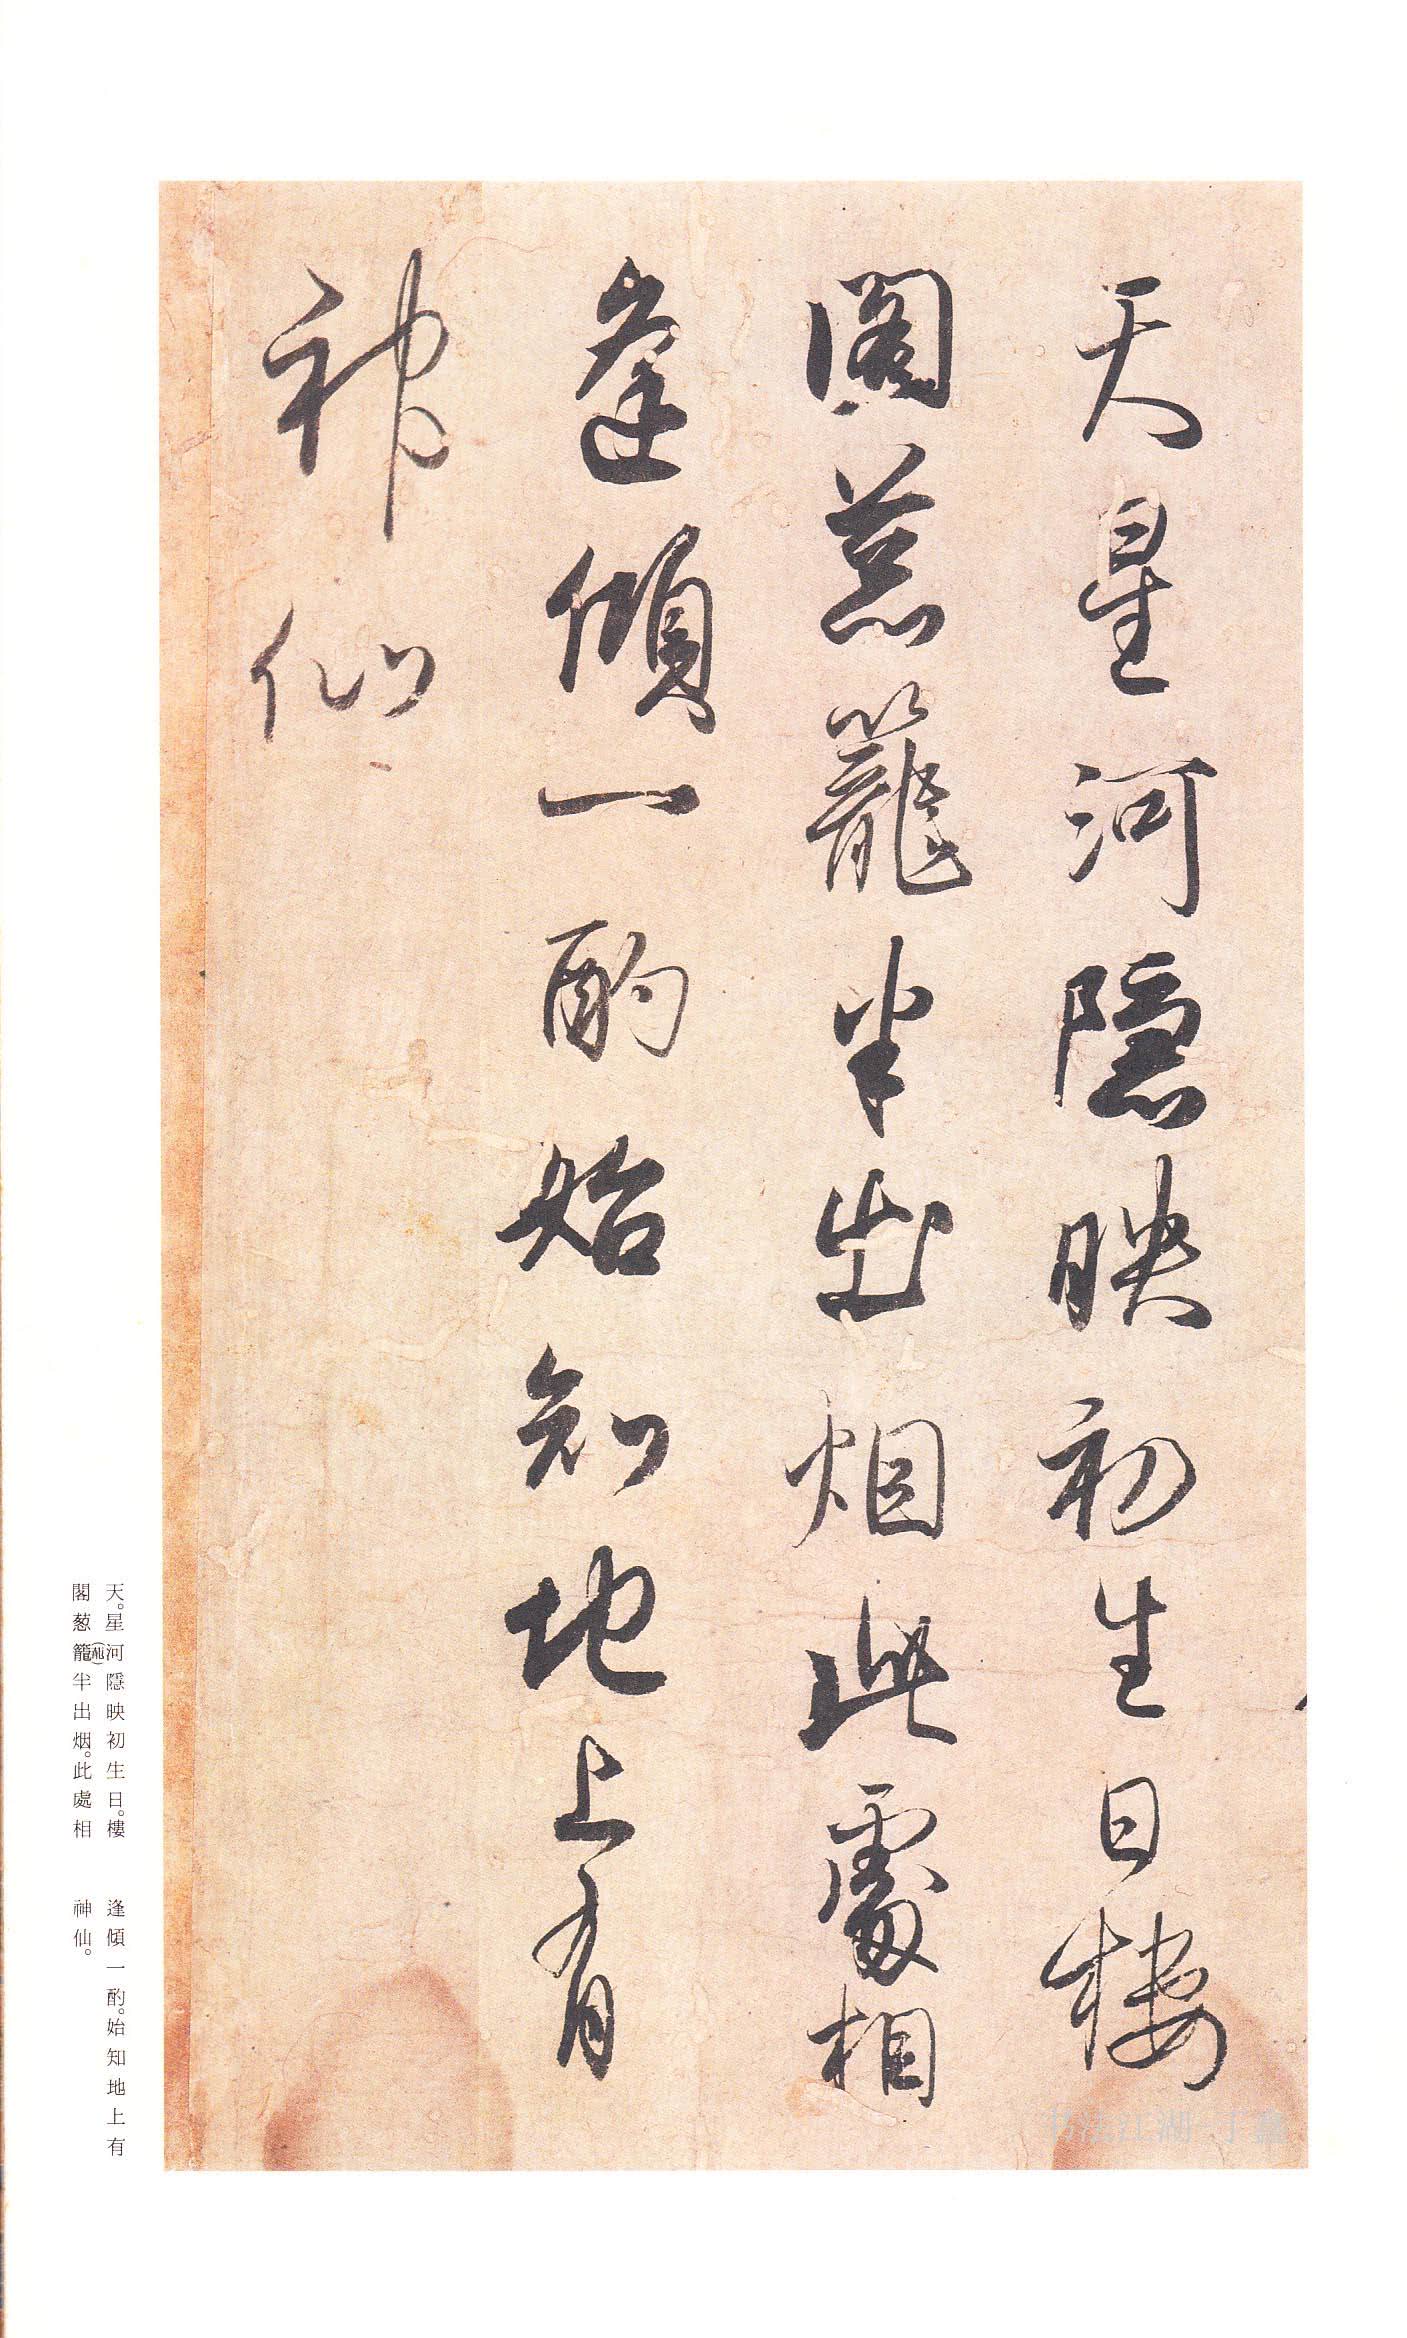 天星河隱映初生日樓
閣葱籠半出烟此處相
逢傾一酌始知地上有
神仙
天。星河隱映初生日。樓
閣葱籠半出烟。此處相
逢傾一酌。始知地上有
神仙。
书法江湖